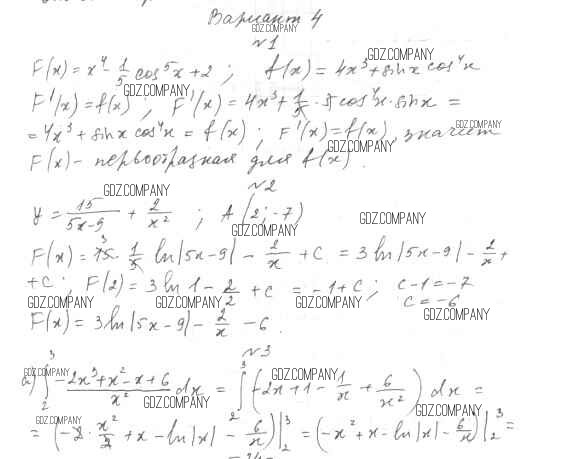 Вариант 4
GDZ.COMPANY
№1
GDZ.COMPANY
F(x) = x⁴ - 1/5 cos⁵x + 2 ; f(x) = 4x³ + sinx cos⁴x
GDZ.COMPANY
F'(x) = f(x) ; F'(x) = 4x³ + 1/5 · 5 cos⁴x · sinx =
= 4x³ + sinx cos⁴x = f(x) ; F'(x) = f(x), значит
GDZ.COMPANY GDZ.COMPANY
F(x) - первообразная для f(x).
№2
GDZ.COMPANY
y = 15/(5x-9) + 2/x² ; A(2; -7)
GDZ.COMPANY GDZ.COMPANY
F(x) = 15 · 1/5 ln|5x-9| - 2/x + C = 3 ln|5x-9| - 2/x +
+C ; F(2) = 3 ln 1 - 2/2 + C = -1 + C ; C - 1 = -7
GDZ.COMPANY GDZ.COMPANY GDZ.COMPANY C = -6
F(x) = 3 ln|5x-9| - 2/x - 6. GDZ.COMPANY
№3
GDZ.COMPANY GDZ.COMPANY
а) ∫₂³ (-2x³ + x² - x + 6)/x² dx = ∫₂³ (-2x + 1 - 1/x + 6/x²) dx =
GDZ.COMPANY GDZ.COMPANY
GDZ.COMPANY
= (-2 · x²/2 + x - ln|x| - 6/x)|₂³ = (-x² + x - ln|x| - 6/x)|₂³ =